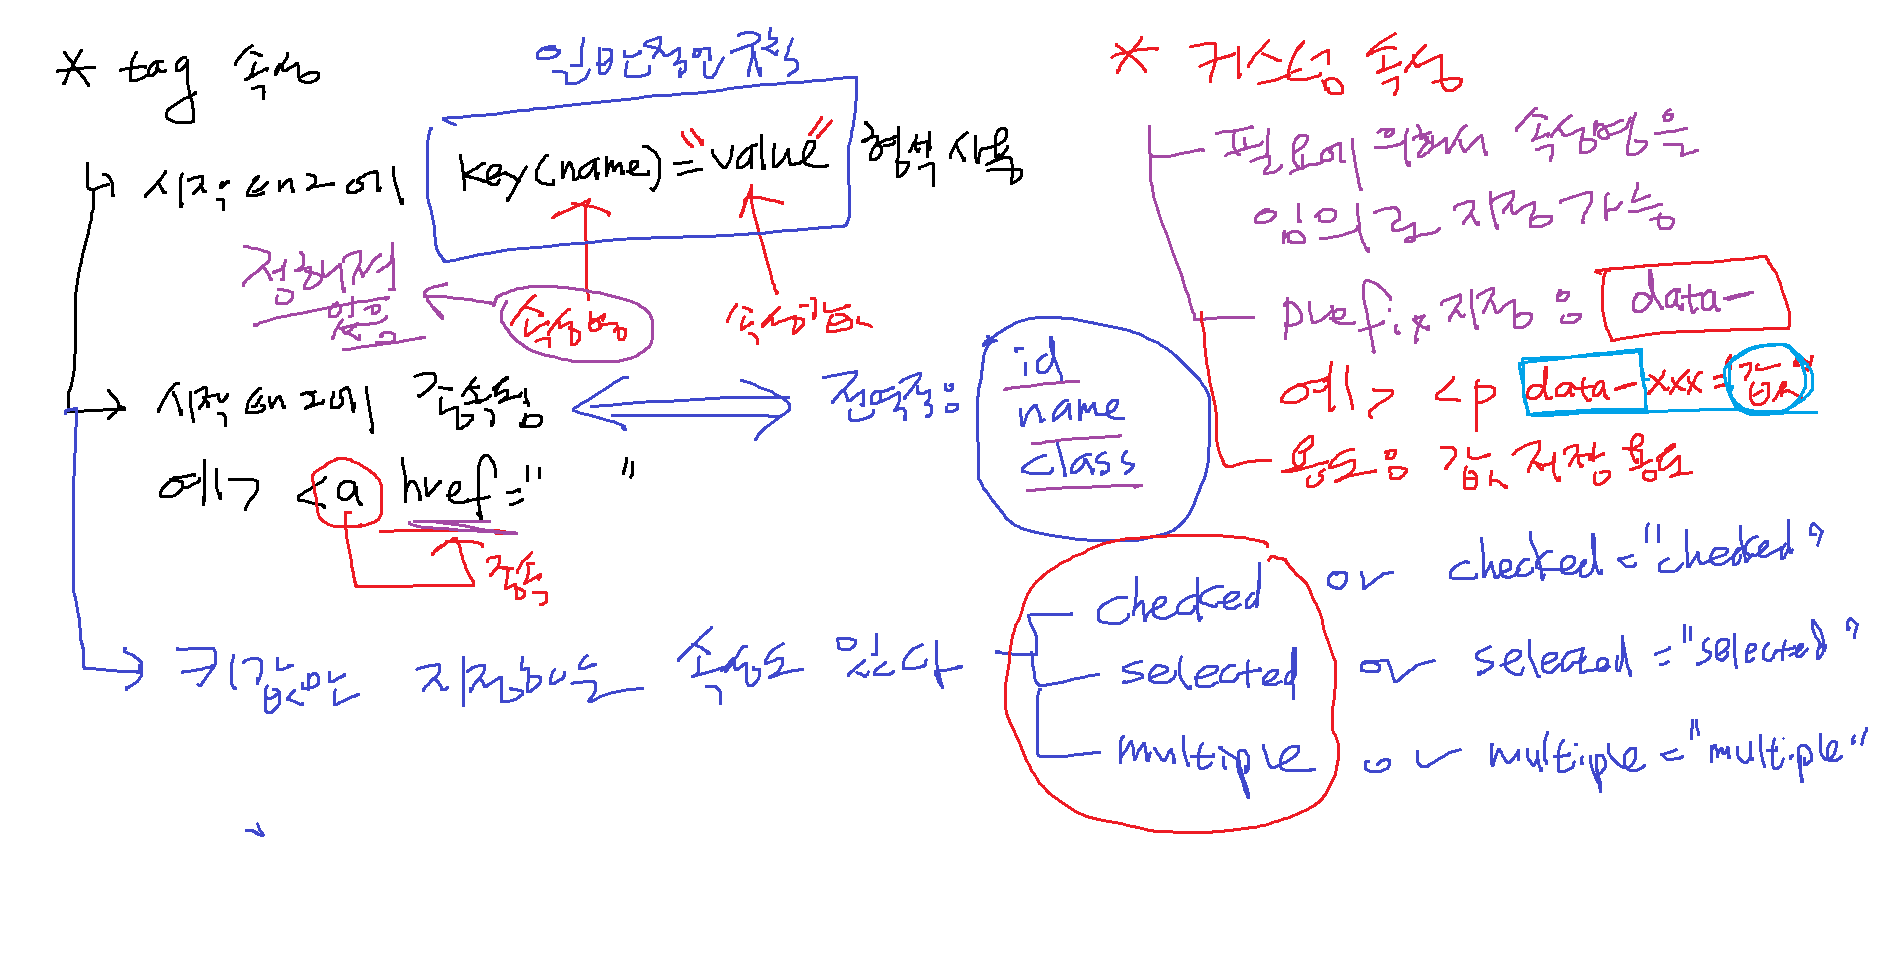 * tag 속성
일반적인 규칙
시작 태그에 key(name)="value" 형식 사용
정해져
있음
속성명
속성값
시작 태그에 종속됨 전역적:
id
name
class
예> <a href=" "
종속
키값만 지정하는 속성도 있다
checked or checked="checked"
selected or selected="selected"
multiple or multiple="multiple"
* 커스텀 속성
필요에 의해서 속성명을
임의로 지정 가능
prefix 지정 : data-
예> <p data-xxx="값"
용도 : 값 저장 용도